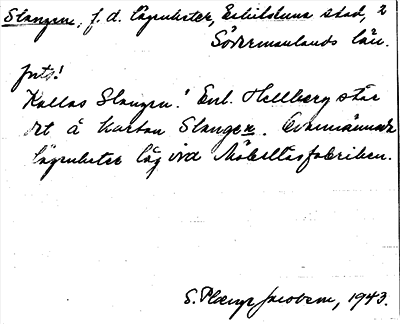 Slangen, f.d. lägenheter, Eskilstuna stad, 2
Södermanlands län.
Jvts!
Kallas Slangen! Enl. Hellberg står
det å kartan Slangen. Ovannämnda
lägenheter låg vid Möbellåsfabriken.
S. Jacobson, 1943.